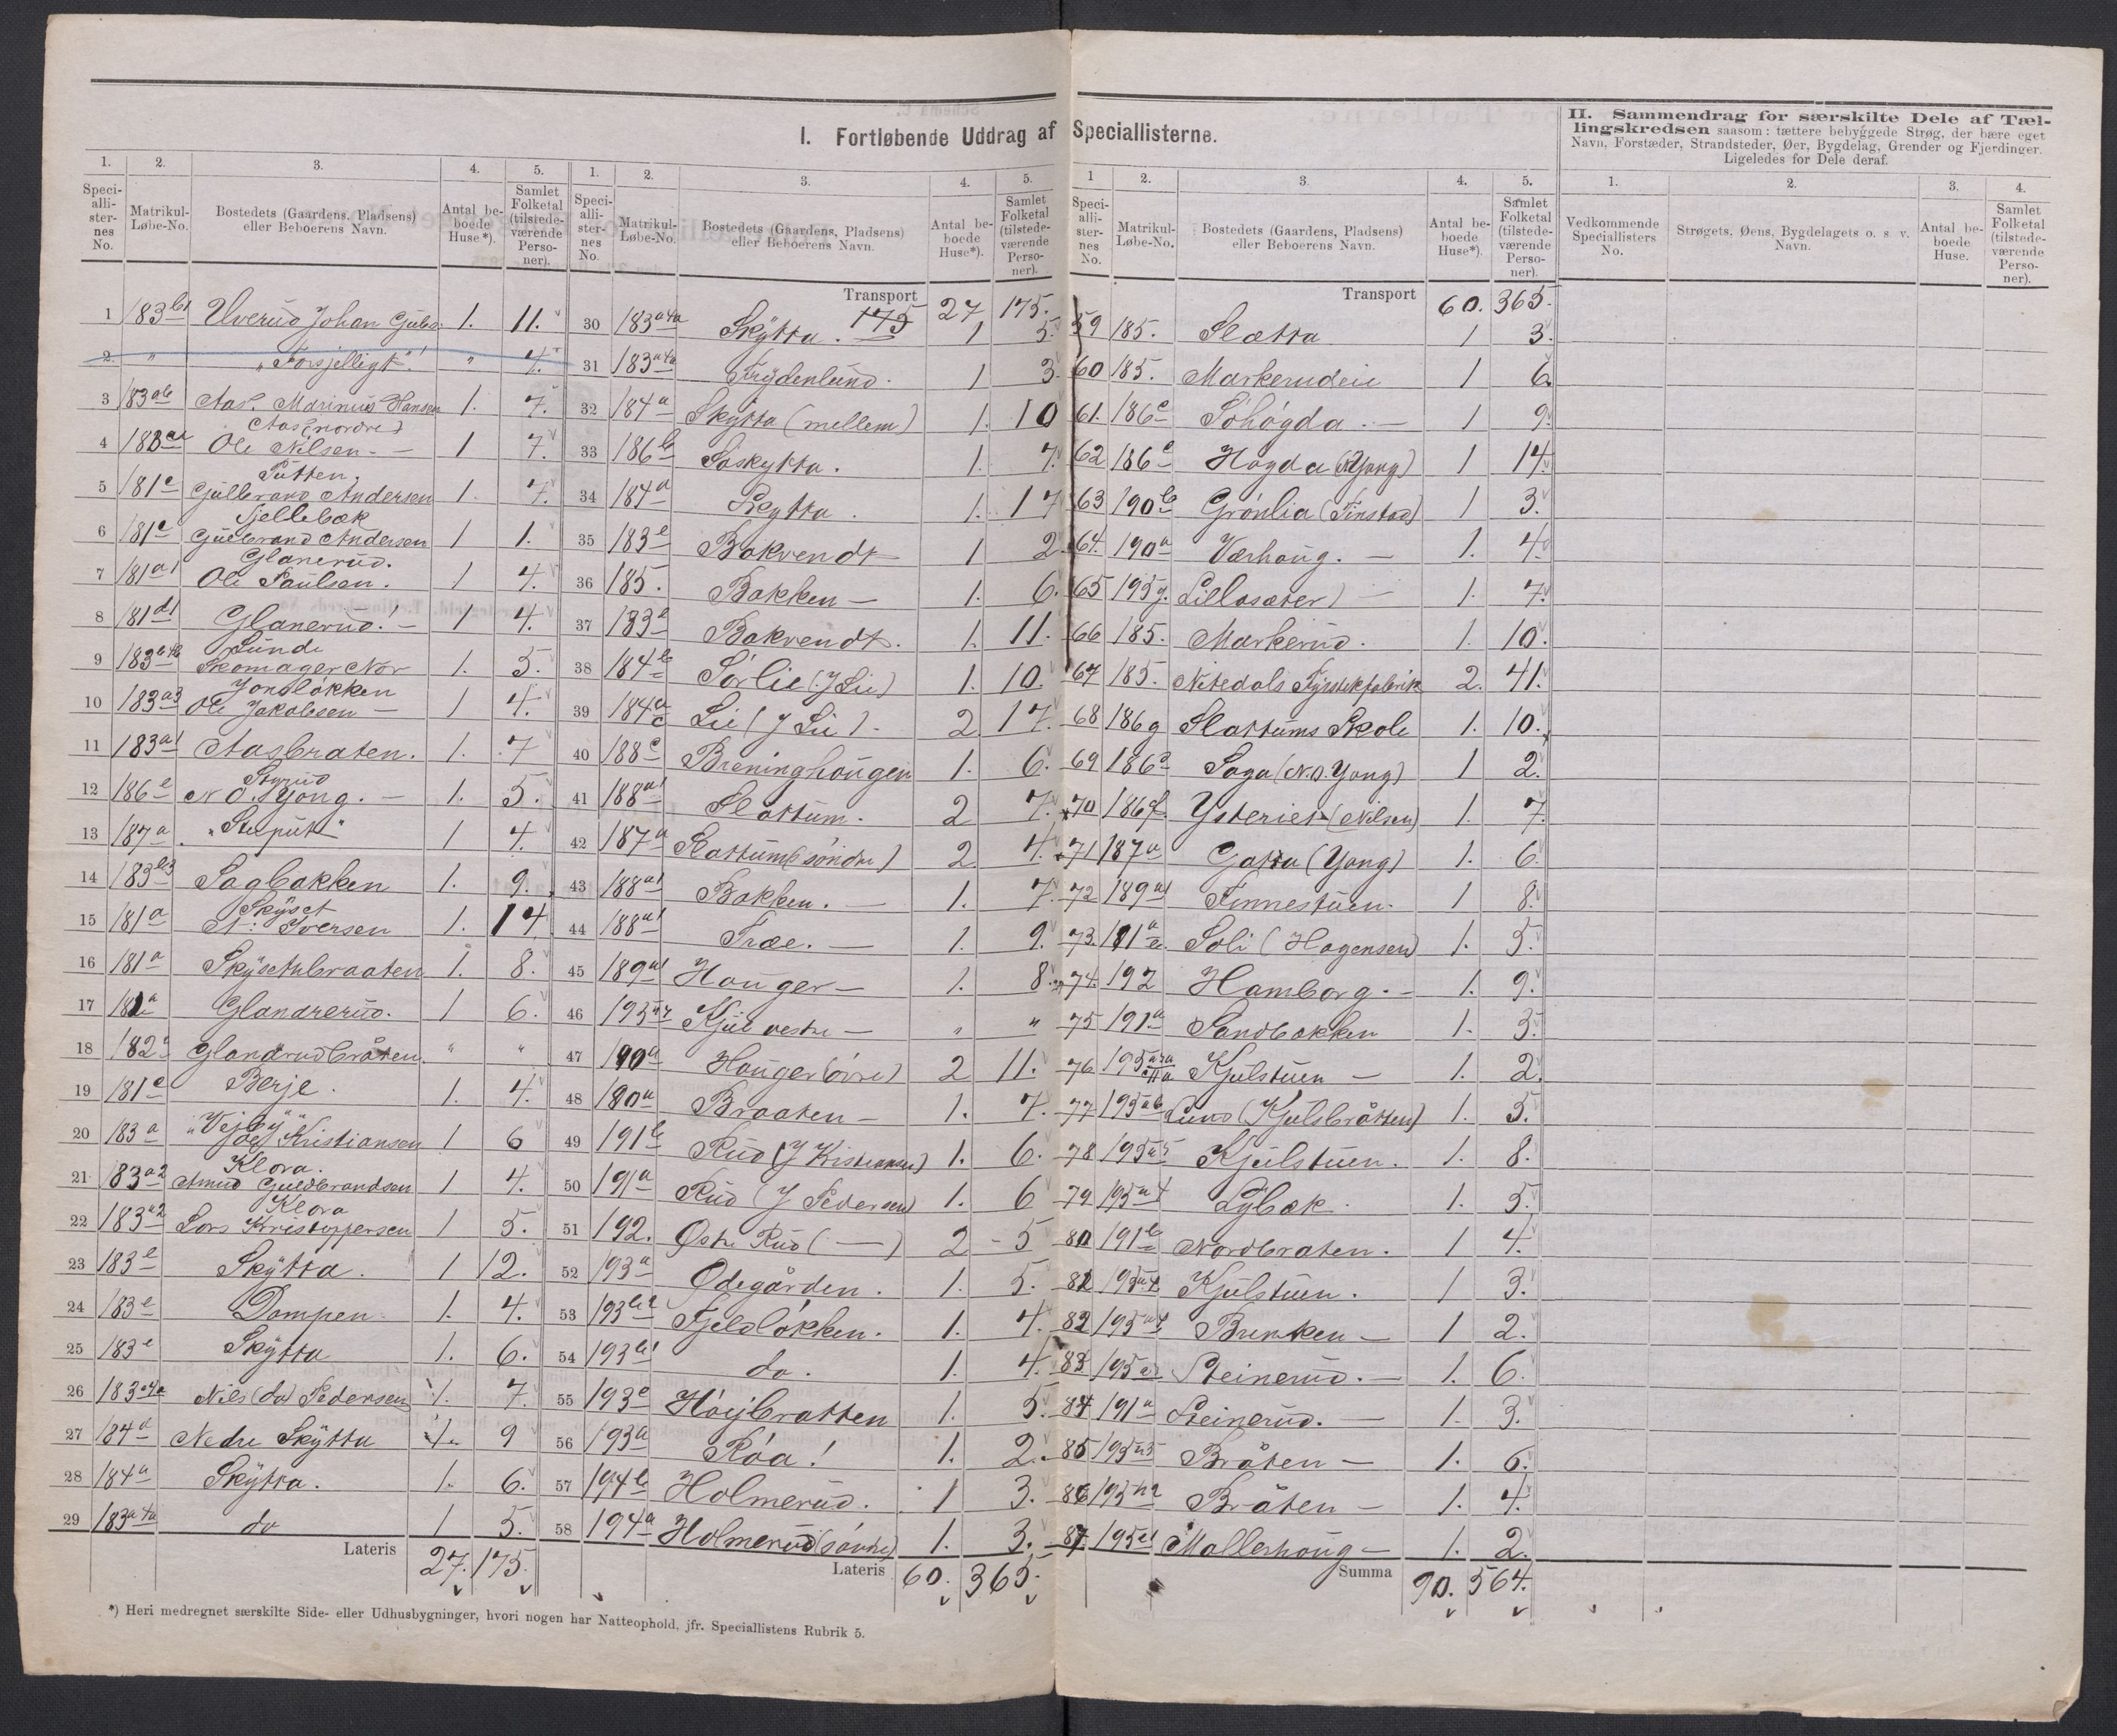 I. Fortløbende Uddrag af Speciallisterne.
II. Sammendrag for særskilte Dele af Tæl-
lingskredsen saasom: tættere bebyggede Strøg, der bære eget
Navn, Forstæder, Strandsteder, Øer, Bygdelag, Grender og Fjerdinger.
Ligeledes for Dele deraf.
1. 2. 3. 4. 5.
Speci-alli-ster-nes No. Matrikul-Løbe-No. Bostedets (Gaardens, Pladsens) eller Beboerens Navn. Antal be-boede Huse*). Samlet Folketal (tilstede-værende Perso-ner).
1 183 b1 Ulverud Johan Gulbs: 1. 11.
2 " "Forsjelligt"! " 4.
3 183 Aas. Marinus Hansen 1. 7.
Aas (nordre)
4 183 Ole Nilsen - 1 7.
Putten.
5 181 c Gulbrand Andersen 1 7.
Tjellebæk
6 181 c Gulbrand Andersen 1 1.
Glanerud.
7 181 a1 Ole Paulsen. 1 4.
8 181 d1 Glanerud! - 1 4.
Lunde
9 183 Skomager Nor 1. 5.
Jonsløkken
10 183 a3 Ole Jakobsen - 1 4.
11 183 a1 Aasbraten. 1. 7
12 186 e N O. Yong. - 1. 5.
13 187 a "Stuput" 1 4.
14 183 b3 Sagbakken 1. 9.
Skyset
15 181 a A: Iversen 1. 14
16 181 a Skysethbraaten 1. 8.
17 181 a Glandrerud. 1 6.
18 182 Glandrudbråten. " "
19 181 c Berje. 1. 4.
"Vejby"
20 183 a Kristiansen 1 6
Klora.
21 183 a2 Amund Guldbrandsen 1 4.
Klora
22 183 a2 Lars Kristoffersen 1 5.
23 183 e Skytta. 1 12.
24 183 e Dampen 1. 4.
25 183 e Skytta 1. 6.
26 183 a4a Nils (do) Pedersen 1. 7.
27 184 a Nedre Skytta 1. 9
28 184 a Skytta. 1. 6.
29 183 a4a do 1 5.
Lateris 27. 175.
1. 2. 3. 4. 5.
Speci-alli-ster-nes No. Matrikul-Løbe-No. Bostedets (Gaardens, Pladsens) eller Beboerens Navn. Antal be-boede Huse*). Samlet Folketal (tilstede-værende Perso-ner).
Transport 27 175.
30 183 a4a Skytta. 175 1 5.
31 183 a4a Frydenlund. 1 3.
32 184 a Skytta (mellem) 1. 10
33 186 b Søskytta. 1. 7.
34 184 a Skytta. 1. 17
35 183 e Bakvendt 1 2.
36 185. Bakken - 1. 6.
37 183 e Bakvendt. 1. 11.
38 184 b Sørlie (J Lie) 1. 10.
39 184 Lie (J Lie). 2 17.
40 188 c Breninghougen 1. 6.
41 188 a1 Slattum. 2 7.
42 187 a Slattum (søndre) 2 4.
43 188 a1 Bakken. - 1. 7.
44 188 a1 Træe. - 1. 9.
45 189 a1 Houger - 1. 8.
46 195 Kjul vestre - " "
47 190 a Houger (øvre) 2 11.
48 190 a Braaten - 1. 7.
49 191 b Rud (J Kristiansen) 1. 6.
50 191 a Rud (J Pedersen) 1. 6
51 192. Østre Rud ( - ) 2 - 5
52 193 a Ødegården. 1. 5.
53 193 Fjeldløkken. 1. 4.
54 193 b1 do. 1. 4.
55 193 c Høijbratten 1. 5.
56 193 a Røa! 1. 2.
57 194 b Holmerud. 1 3.
58 194 a Holmerud (søndre) 1. 3.
Lateris 60. 365.
1 2. 3. 4. 5.
Speci-alli-ster-nes No. Matrikul-Løbe-No. Bostedets (Gaardens, Pladsens) eller Beboerens Navn. Antal be-boede Huse*). Samlet Folketal (tilstede-værende Perso-ner).
Transport 60. 365.
59 185. Slætta 1 3.
60 185. Markerudeie 1 6
61. 186 c Søhøgda. - 1 9.
62 186 c Høgda (Yong) 1 14.
63 190 b Grønlia (Finstad) 1 3.
64. 190 a Værhoug. - 1. 4.
65 195 g. Lillosæter) - 1. 7.
66 185. Markerud. 1. 10.
67 185. Nitedals Fyrstikfabrik 2. 41.
68 186 g Slattums Skole 1. 10.
69 186 Saga (N.O. Yong) 1 2.
70 186 f Ysteriet (Nilsen) 1. 7.
71 187 a Gatta (Yong) 1. 6.
72 189 a1 Finnestuen. 1 8.
73. 191 Soli (Hagensen) 1. 5.
74. 192 Hamborg. - 1. 9.
75 191 a Sandbakken 1. 3.
76 195 Kjulstuen - 1. 2.
77 195 Lund (Kjulsbråtten) 1. 5.
78 195 Kjulstuen. 1. 8.
79 195 Lybæk. 1. 5.
80 191 b Nordbraten. 1 4.
81 195 Kjulstuen. 1 3.
82 195 Brenken - 1 2.
83 195 Steinerud. - 1. 6.
84 191 a Steinerud. - 1. 3.
85 195 Bråten - 1. 6.
86 195 Bråten - 1. 4.
87 195 Møllerhoug - 1. 2.
Summa 90. 564.
1. 2. 3. 4.
Vedkommende Speciallisters No. Strøgets, Øens, Bygdelagets o. s. v. Navn. Antal be-boede Huse. Samlet Folketal (tilstede-værende Perso-ner).
*) Heri medregnet særskilte Side- eller Udhusbygninger, hvori nogen har Natteophold, jfr. Speciallistens Rubrik 5.